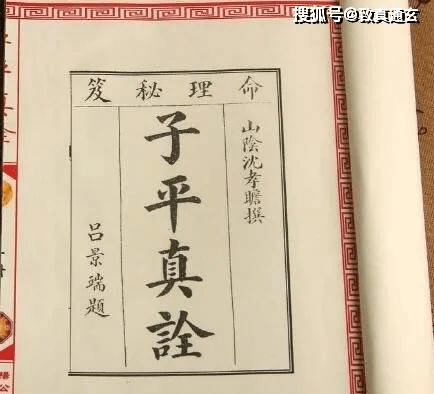 搜狐号@致真通玄
命理秘笈
山陰沈孝瞻撰
子平真詮
吕景端題
子平真詮